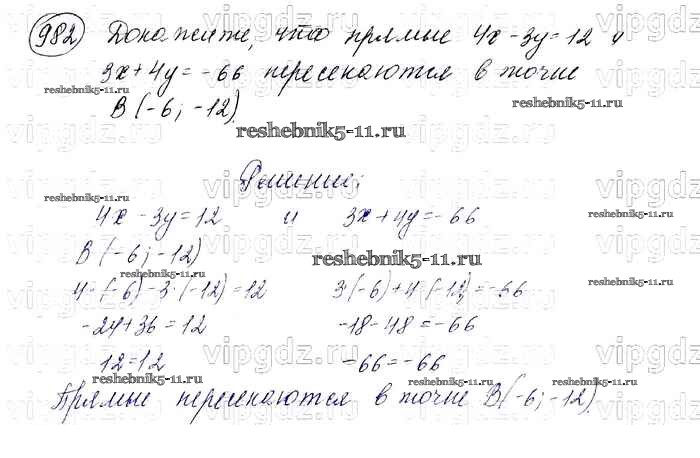 982 Докажите, что прямые 4x - 3y = 12 и
3x + 4y = -66 пересекаются в точке
B (-6; -12)
reshebnik5-11.ru
Решение:
4x - 3y = 12 и 3x + 4y = -66
B (-6; -12)
4·(-6) - 3·(-12) = 12 3·(-6) + 4·(-12) = -66
-24 + 36 = 12 -18 - 48 = -66
12 = 12 -66 = -66
Прямые пересекаются в точке B(-6; -12)